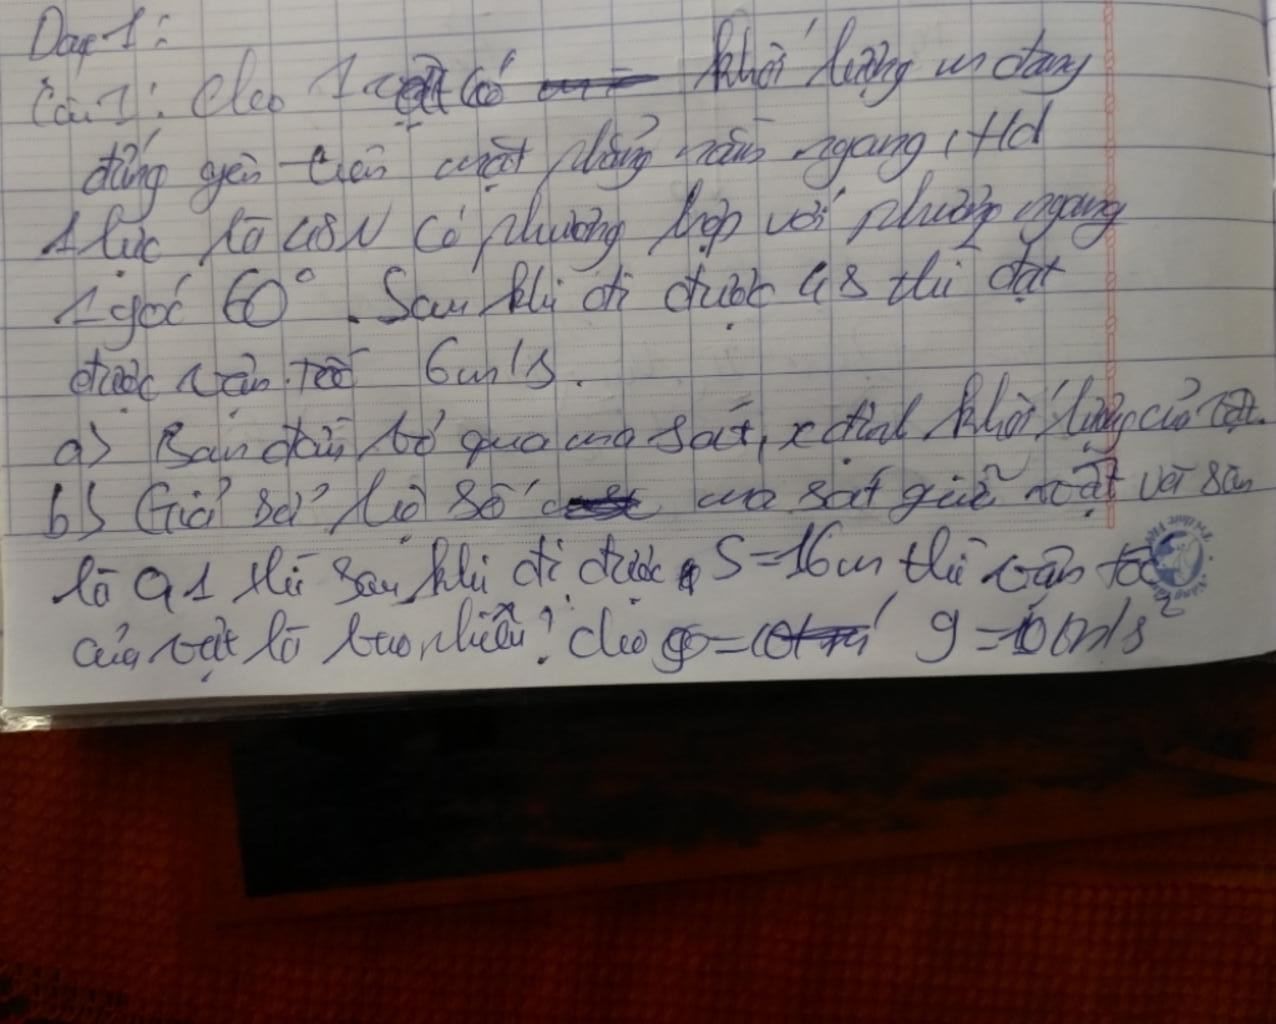 Dạng 1:
Câu 1: Cho 1 vật có khối lượng m đang
đứng yên trên mặt phẳng nằm ngang, td
1 lực là 48N có phương hợp với phương ngang
1 góc 60°. Sau khi đi được 4s thì đạt
được vận tốc 6m/s.
a) Ban đầu bỏ qua ma sát, x định khối lượng của vật.
b) Giả sử hệ số ma sát giữa vật và sàn
là 0,1 thì sau khi đi được S = 16m thì vận tốc
của vật là bao nhiêu? cho g = 10m/s²